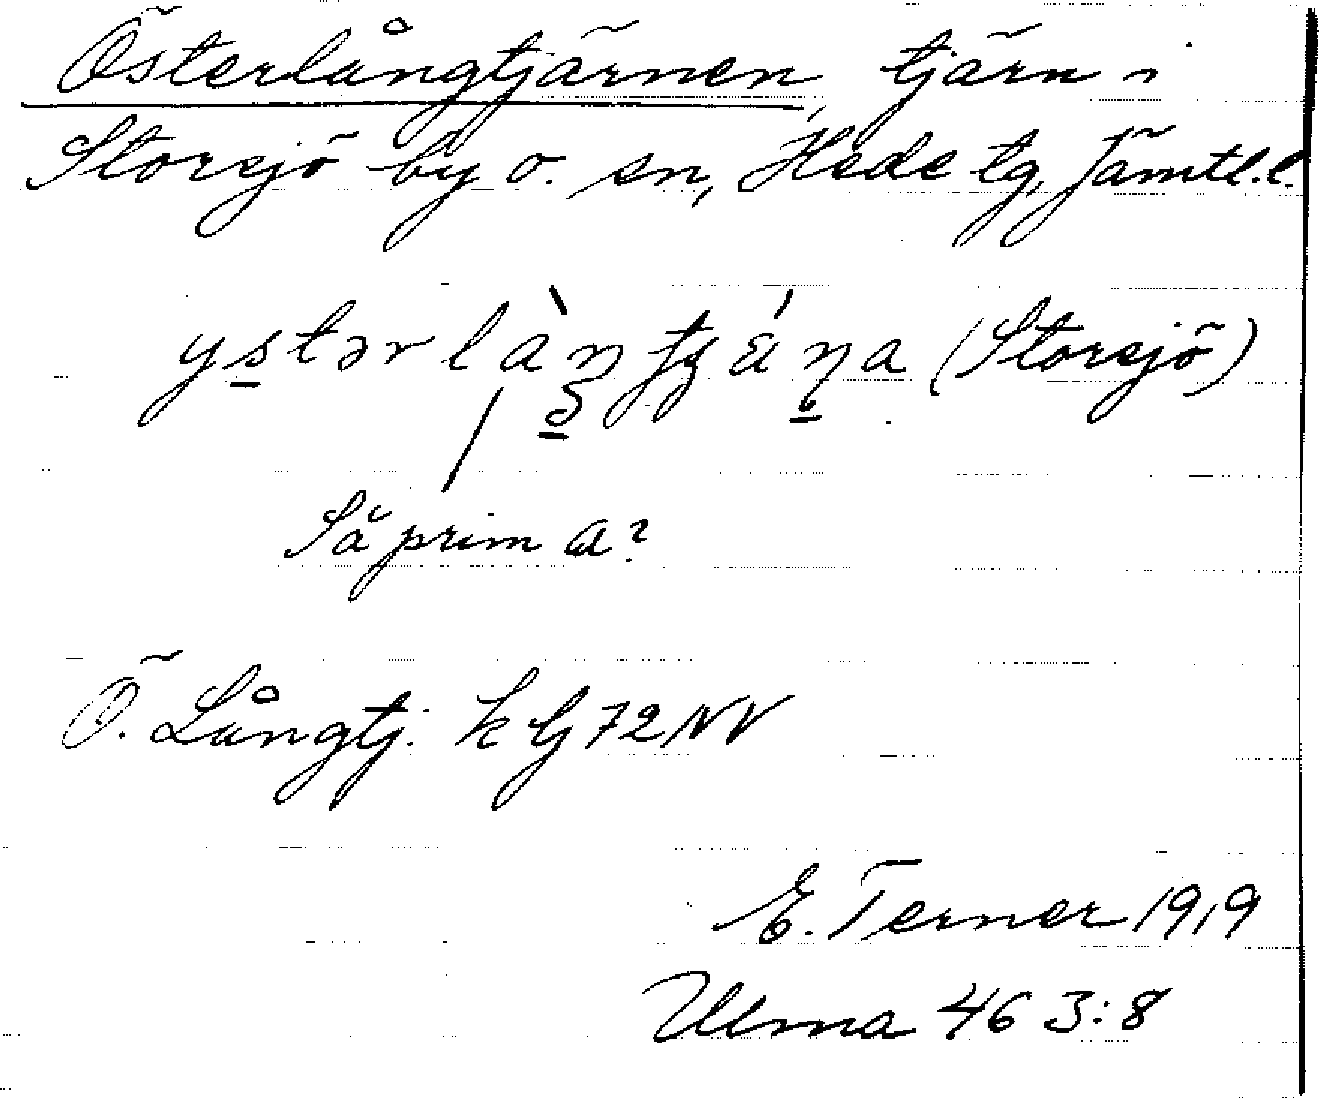 Österlångtjärnen, tjärn i
Storsjö by o. sn, Hede tg, Jämtl.l.
ystərlàn̠tʒǽṇa (Storsjö)
Så prim a?
Ö. Långtj. k bj 72 NV
E. Terner 1919
Ulma 463:8